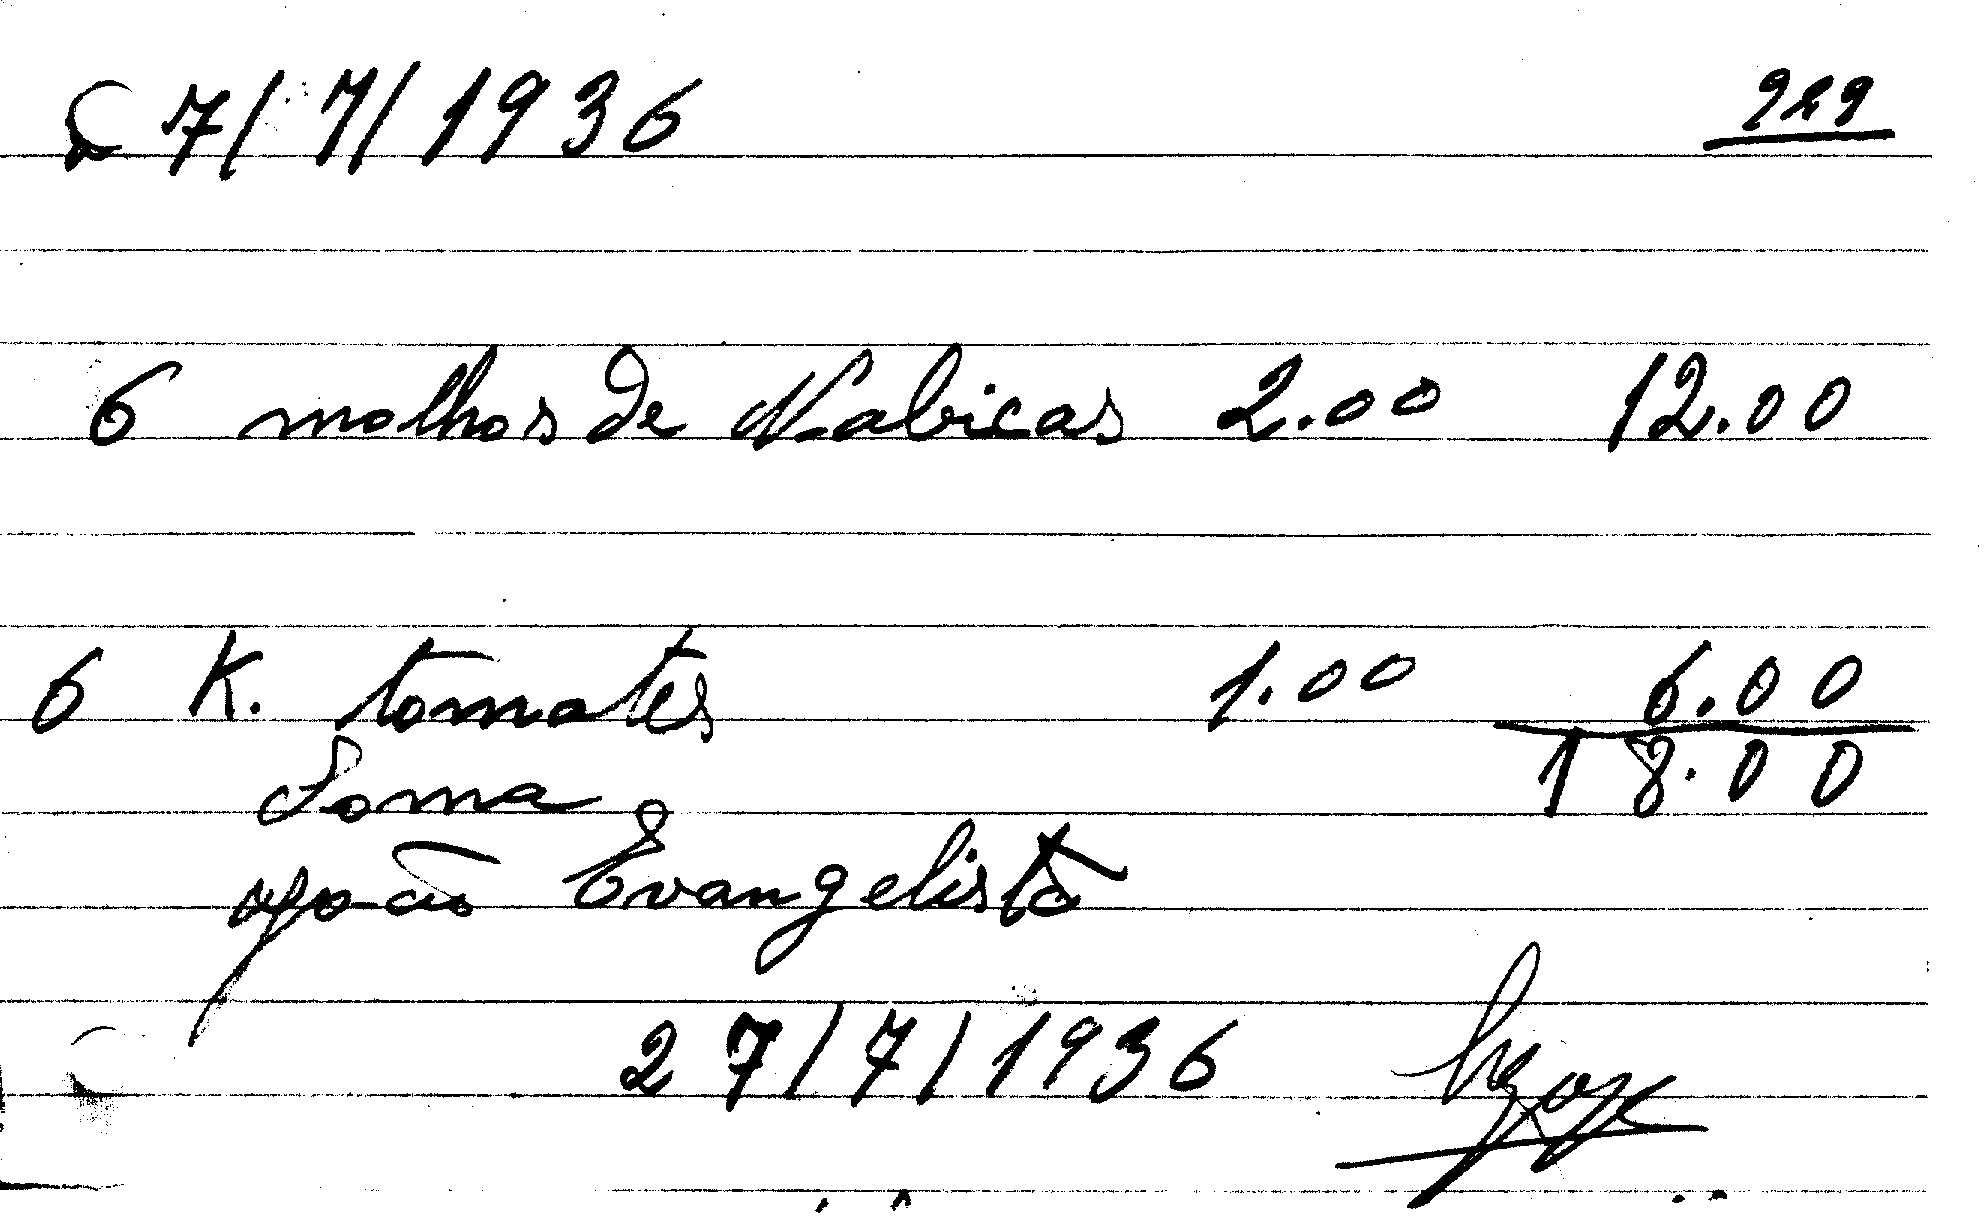 27/7/1936 929
6 molhos de Nabiças 2.00 12.00
6 K. tomates 1.00 6.00
Soma 18.00
João Evangelista
27/7/1936